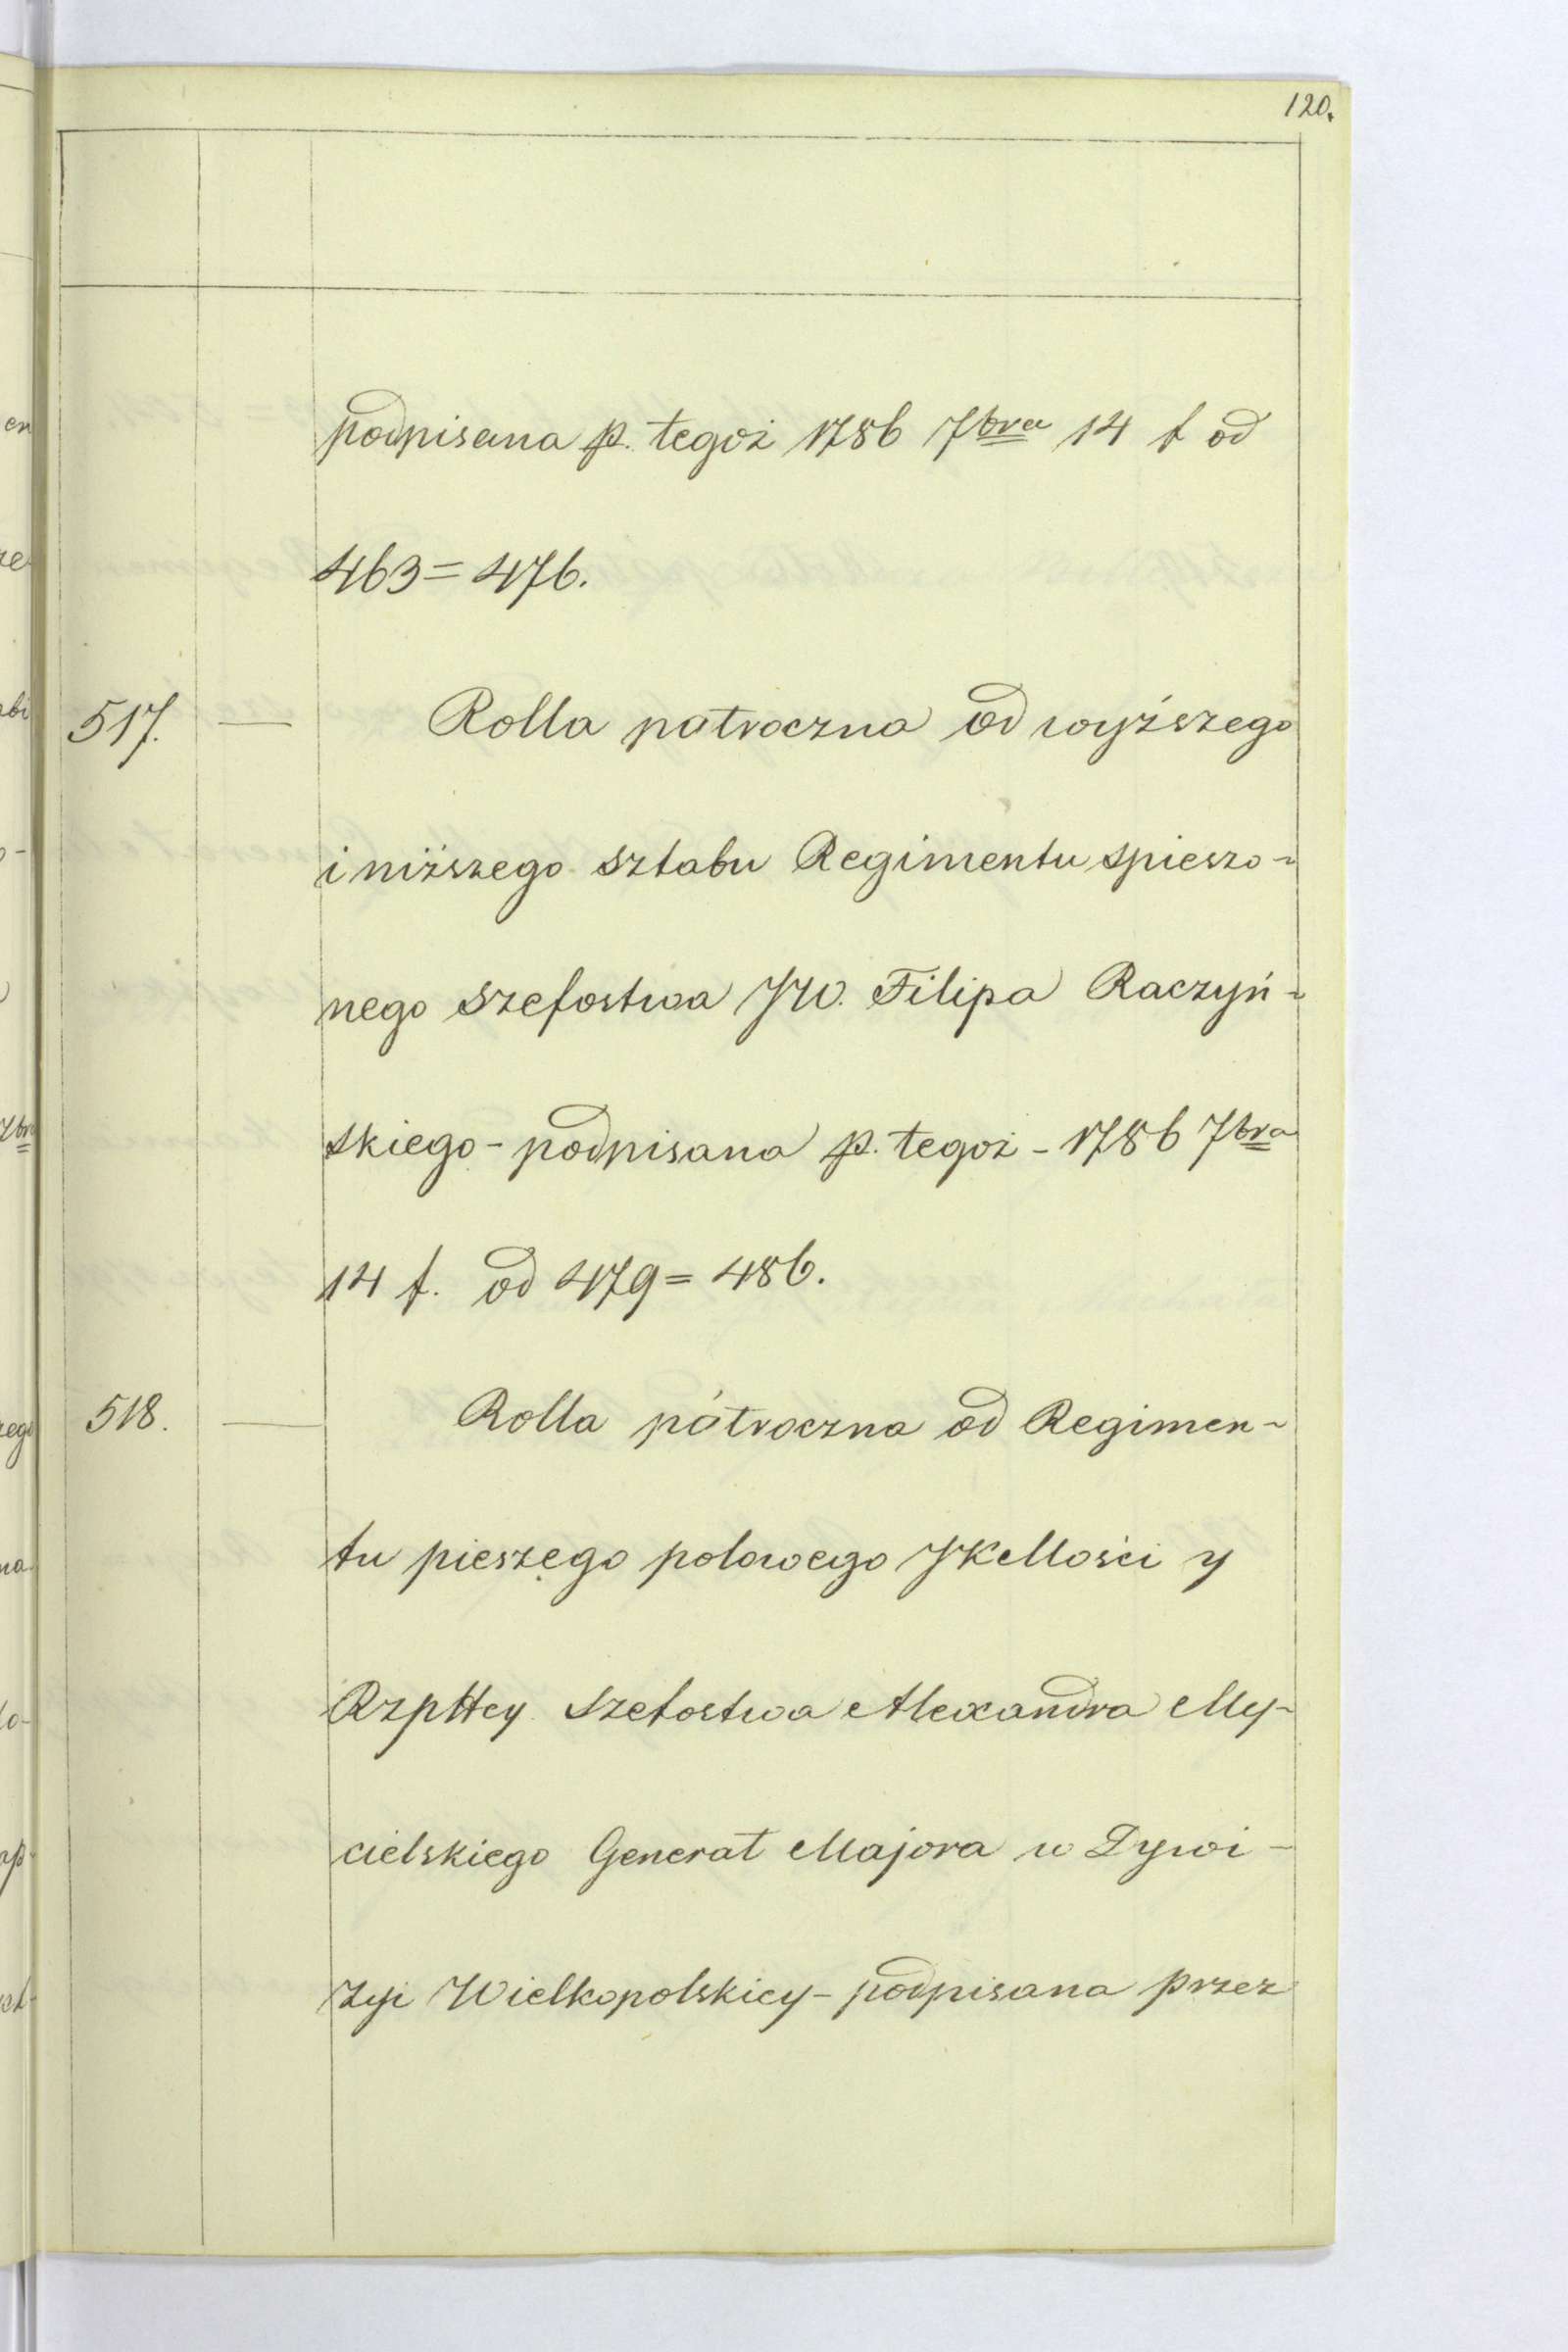 120.
podpisana p. tegoż 1786 7bra 14 f od
463=476.
517. — Rolla półroczna od wyższego
i niższego sztabu Regimentu spieszo-
nego szefostwa JW. Filipa Raczyń-
skiego - podpisana p. tegoż - 1786 7bra
14 f. od 479=486.
518. — Rolla półroczna od Regimen-
tu pieszego polowego JKMości y
Rzpltey Szefostwa Alexandra My-
cielskiego Generał Majora w Dywi-
zyi Wielkopolskiey - podpisana przez